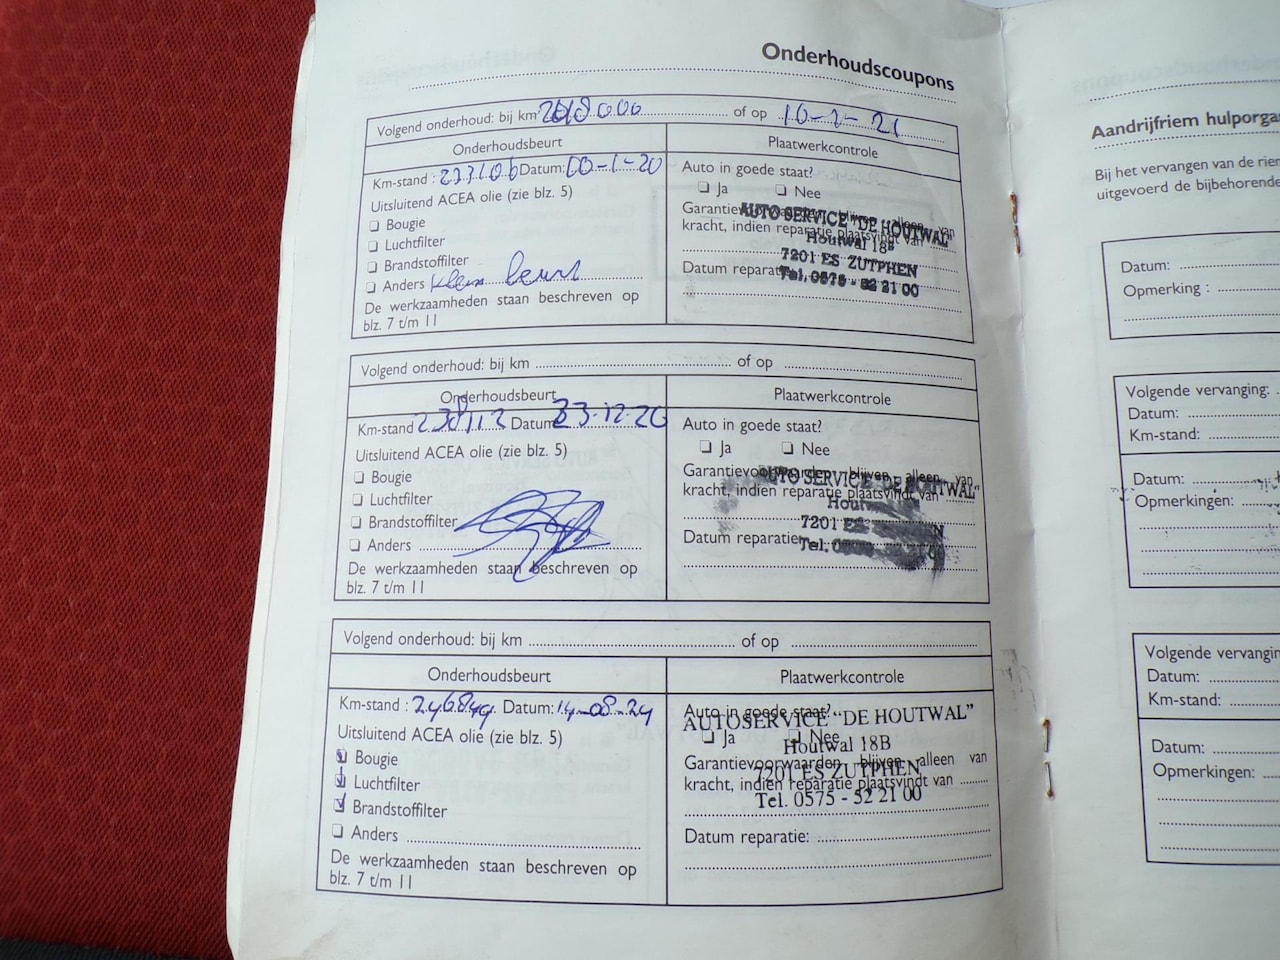 Onderhoudscoupons
Volgend onderhoud: bij km 248000 of op 10-1-21
Onderhoudsbeurt
Plaatwerkcontrole
Km-stand : 233106 Datum: 00-1-20
Uitsluitend ACEA olie (zie blz. 5)
❏ Bougie
❏ Luchtfilter
❏ Brandstoffilter
❏ Anders klein beurt
De werkzaamheden staan beschreven op
blz. 7 t/m 11
Auto in goede staat?
❏ Ja ❏ Nee
Garantievoorwaarden blijven alleen van
kracht, indien reparatie plaatsvindt van
Datum reparatie
AUTO SERVICE "DE HOUTWAL"
Houtwal 18B
7201 ES ZUTPHEN
Tel. 0575 - 52 21 00
Volgend onderhoud: bij km of op
Onderhoudsbeurt
Plaatwerkcontrole
Km-stand 238112 Datum 23-12-20
Uitsluitend ACEA olie (zie blz. 5)
❏ Bougie
❏ Luchtfilter
❏ Brandstoffilter
❏ Anders
De werkzaamheden staan beschreven op
blz. 7 t/m 11
Auto in goede staat?
❏ Ja ❏ Nee
Garantievoorwaarden blijven alleen van
kracht, indien reparatie plaatsvindt van
Datum reparatie
AUTO SERVICE "DE HOUTWAL"
Houtwal
7201 ES ZUTPHEN
Tel.
Volgend onderhoud: bij km of op
Onderhoudsbeurt
Plaatwerkcontrole
Km-stand : 246849 Datum: 14-08-24
Uitsluitend ACEA olie (zie blz. 5)
Bougie
Luchtfilter
Brandstoffilter
❏ Anders
De werkzaamheden staan beschreven op
blz. 7 t/m 11
Auto in goede staat?
❏ Ja ❏ Nee
Garantievoorwaarden blijven alleen van
kracht, indien reparatie plaatsvindt van
Datum reparatie:
AUTOSERVICE "DE HOUTWAL"
Houtwal 18B
7201 ES ZUTPHEN
Tel. 0575 - 52 21 00
Aandrijfriem
Bij het vervangen van de riem
uitgevoerd de bijbehorende
Datum:
Opmerking :
Volgende vervanging:
Datum:
Km-stand:
Datum:
Opmerkingen:
Volgende vervanging
Datum:
Km-stand:
Datum:
Opmerkingen: